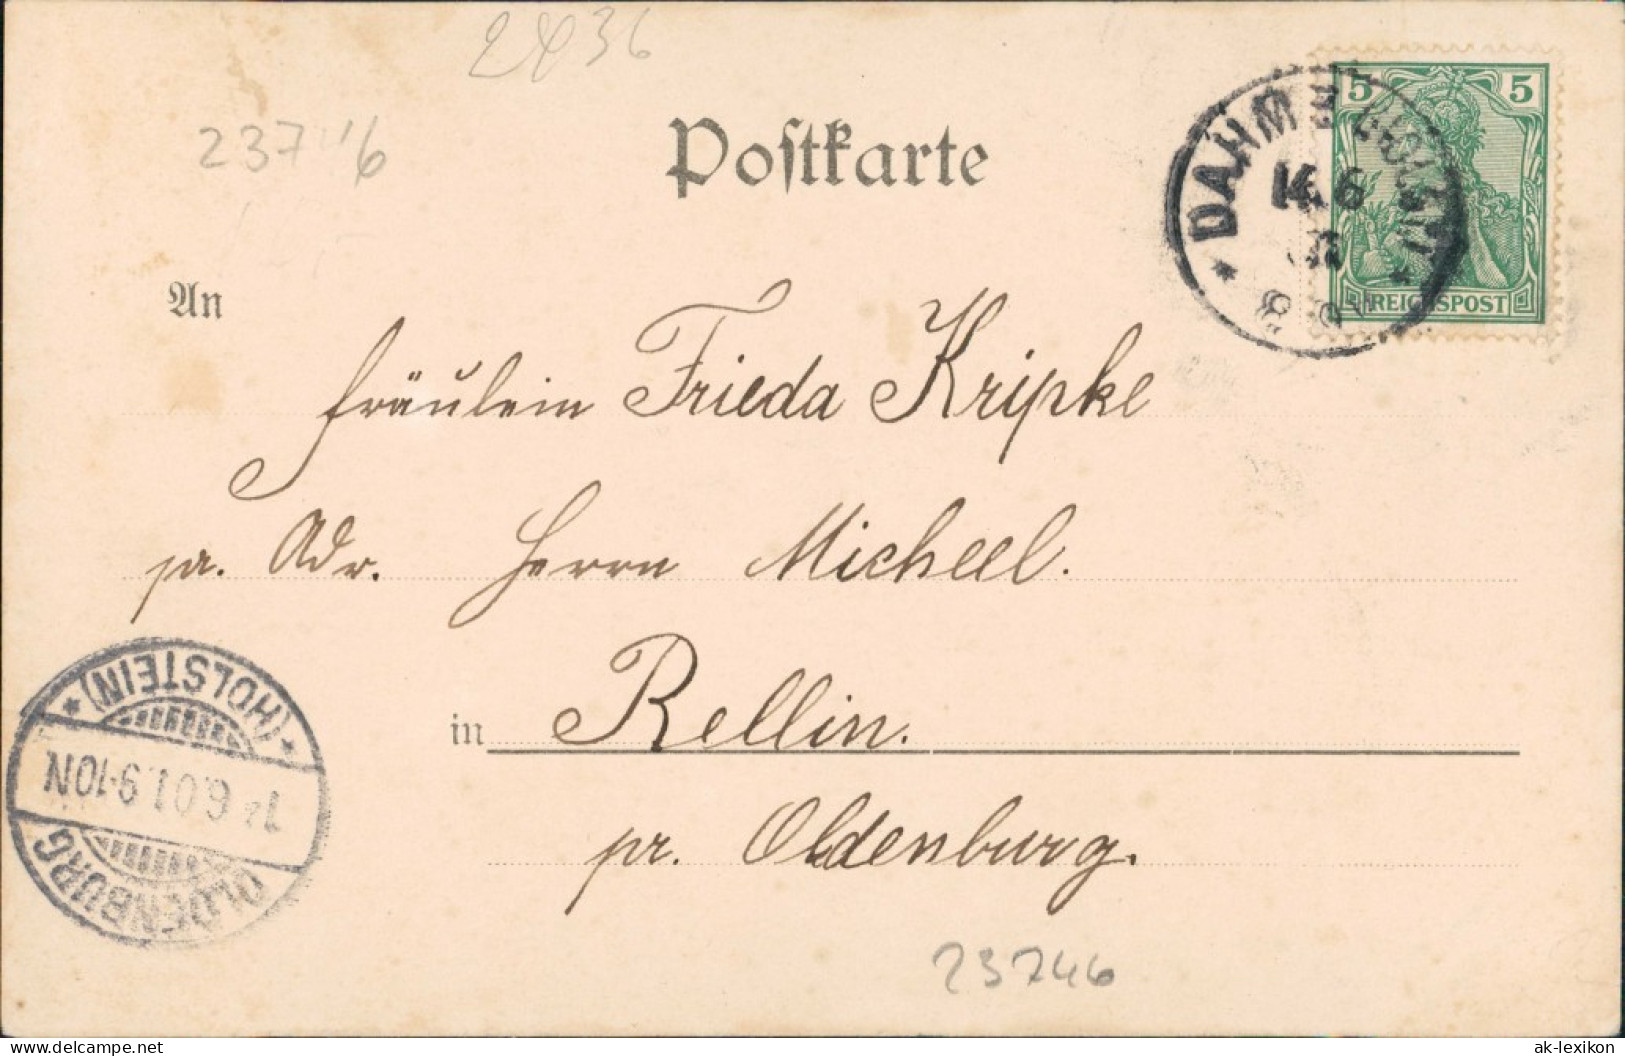 2436
237 46
Postkarte
5 5
REICHSPOST
14.6
An
Fräulein Frieda Kripke
pa. Adr. Herrn Micheel.
in Rellin.
pr. Oldenburg.
(HOLSTEIN)
14.6.01.9-10N
OLDENBURG
23746
delcampe.net
ak-lexikon